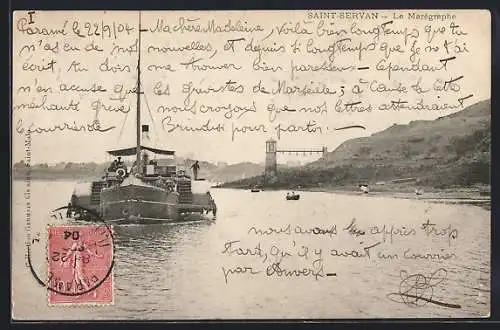 I
SAINT-SERVAN – Le Marégraphe
Paramé le 22/9/04 – Ma chère Madeleine, Voilà bien longtemps que tu
n'as eu de nos nouvelles, et depuis si longtemps que je ne t'ai
écrit, tu dois me trouver bien paresseux – Cependant
n'en accuse que les grévistes de Marseille ; à cause de cette
méchante grève nous croyions que nos lettres attendraient
le courrier de Brindisi pour partir. –
nous avons su après trop
tard, qu'il y avait un courrier
par anvers –
Collection Germain fils aîné, Saint-Malo
PARAMÉ
22
04